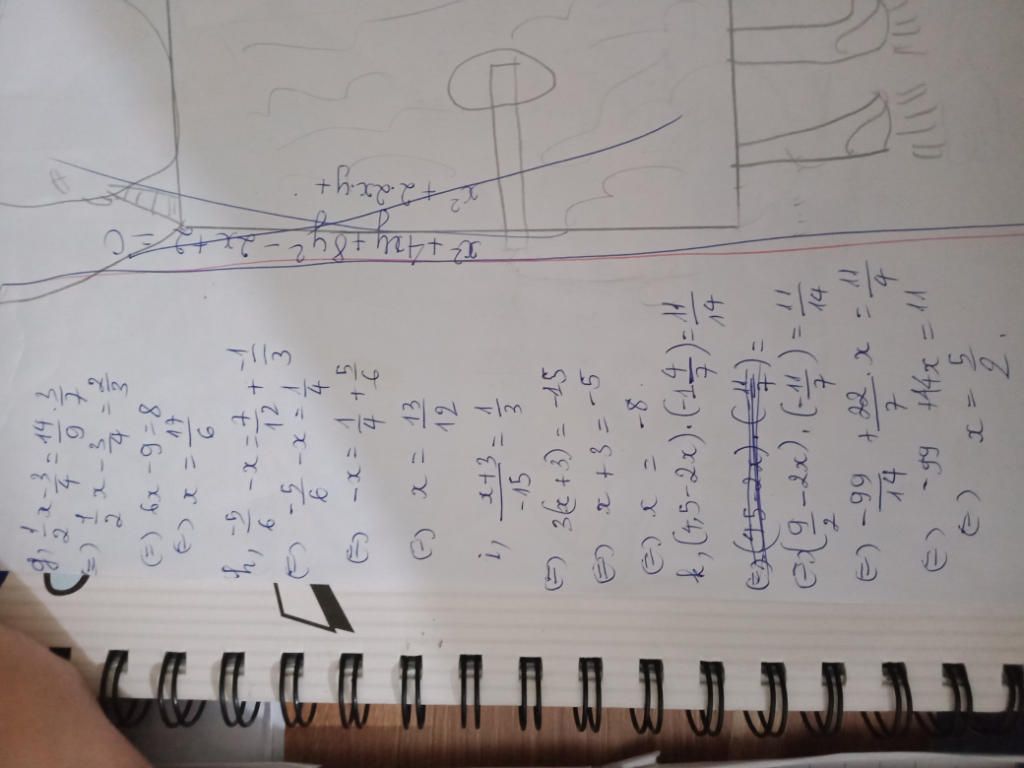 g, 1/2 x - 3/4 = 14/9 . 3/7
(=) 1/2 x - 3/4 = 2/3
(=) 6x - 9 = 8
(=) x = 17/6
h, -5/6 - x = 7/12 + -1/3
(=) -5/6 - x = 1/4
(=) -x = 1/4 + 5/6
(=) x = 13/12
i, x+3/-15 = 1/3
(=) 3(x+3) = -15
(=) x + 3 = -5
(=) x = -8
k, (4,5 - 2x) . (-1 4/7) = 11/14
(=) (4,5 - 2x) . (-11/7) =
(=) (9/2 - 2x) . (-11/7) = 11/14
(=) -99/14 + 22/7 . x = 11/4
(=) -99 + 44x = 11
(=) x = 5/2 .
x² + 4xy + 8y² - 2x +
x² + 2.2x.y +